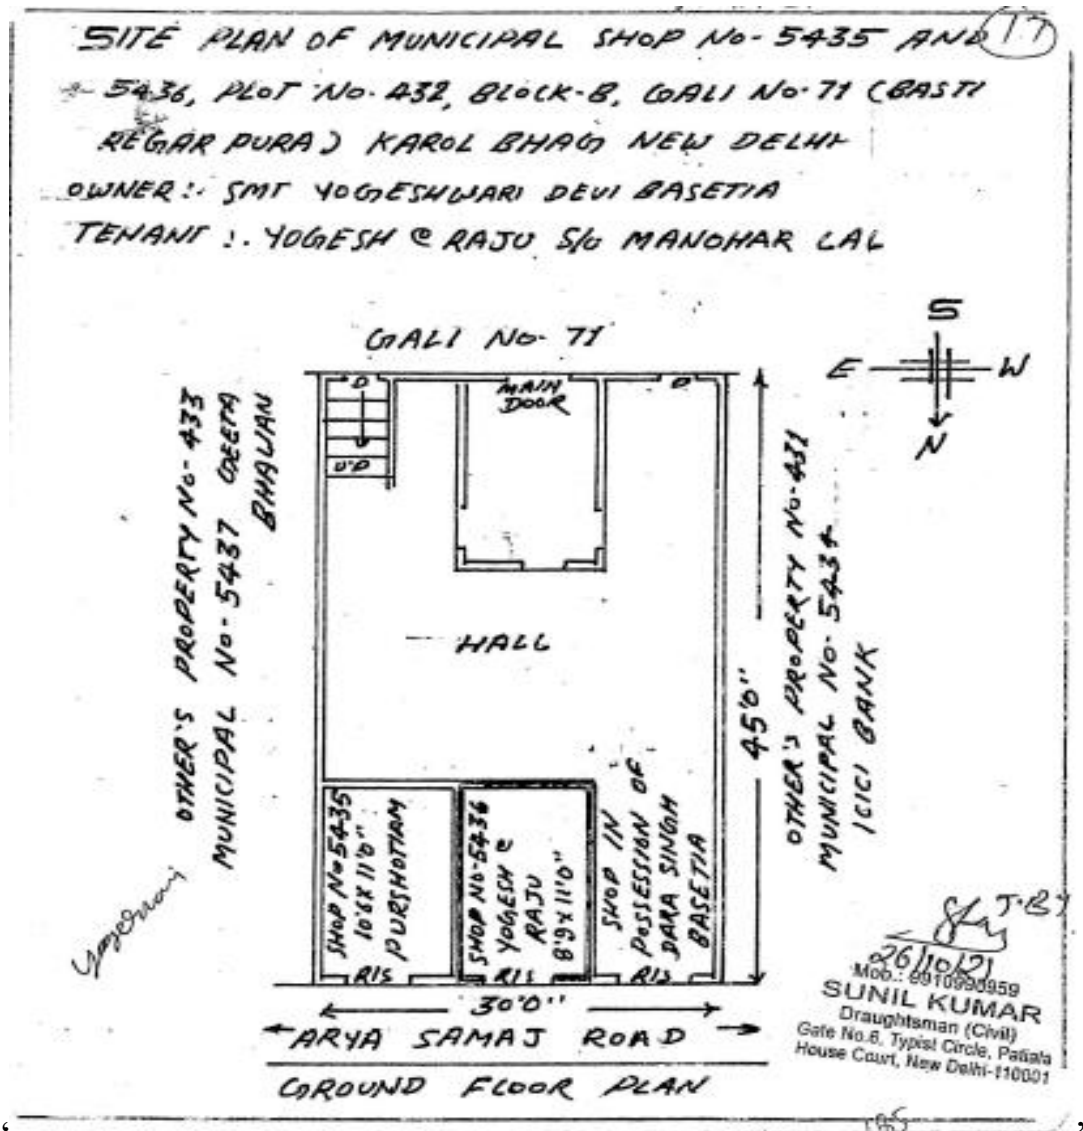 17
SITE PLAN OF MUNICIPAL SHOP No- 5435 AND
5436, PLOT No. 432, BLOCK-B, GALI No-71 (BASTI
REGAR PURA) KAROL BHAG NEW DELHI
OWNER:- SMT YOGESHWARI DEVI BASETIA
TENANT :. YOGESH @ RAJU S/o MANOHAR LAL
GALI No- 71
S
E
W
N
D
MAIN
DOOR
D
UP
OTHER'S PROPERTY No- 433
MUNICIPAL No- 5437 GEETA
BHAWAN
HALL
45'0"
OTHER'S PROPERTY No-431
MUNICIPAL No- 5434
ICICI BANK
SHOP No 5435
10'6X11'0"
PURSHOTTAM
SHOP No-5436
YOGESH @
RAJU
8'9X11'0"
SHOP IN
POSSESSION OF
DARA SINGH
BASETIA
R/S
R/S
R/S
30'0"
ARYA SAMAJ ROAD
GROUND FLOOR PLAN
26/10/21
SUNIL KUMAR
Draughtsman (Civil)
Gate No.6, Typist Circle, Patiala
House Court, New Delhi-110001